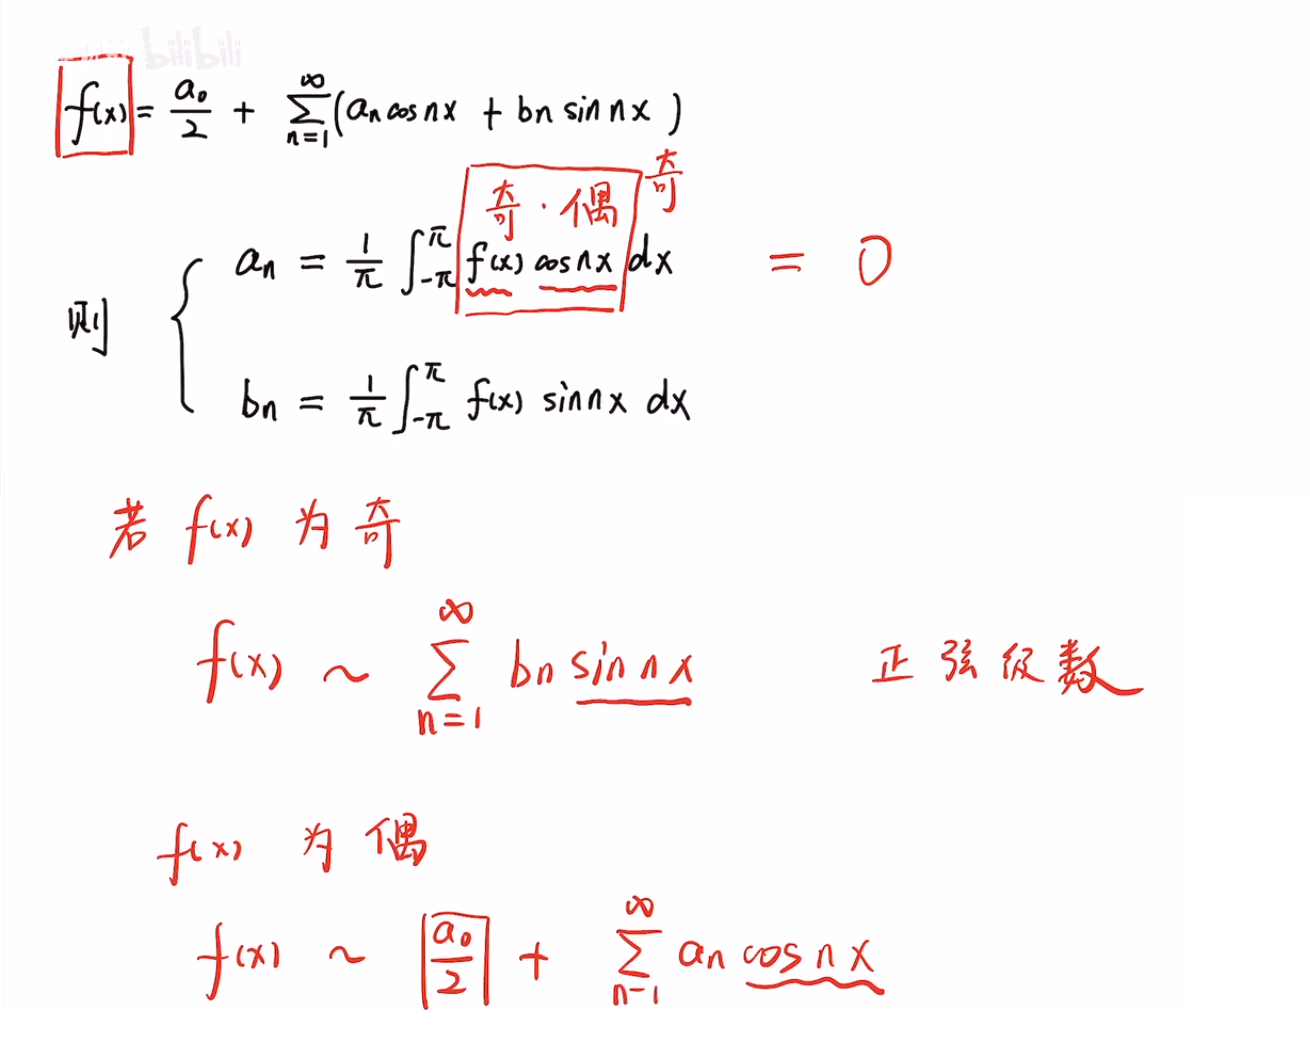 bilibili
f(x) = a₀/2 + ∑_{n=1}^{∞} (aₙ cos nx + bₙ sin nx)
奇 · 偶 奇
aₙ = 1/π ∫_{-π}^{π} f(x) cos nx dx = 0
则
bₙ = 1/π ∫_{-π}^{π} f(x) sin nx dx
若 f(x) 为 奇
f(x) ~ ∑_{n=1}^{∞} bₙ sin nx 正弦级数
f(x) 为 偶
f(x) ~ a₀/2 + ∑_{n-1}^{∞} aₙ cos nx